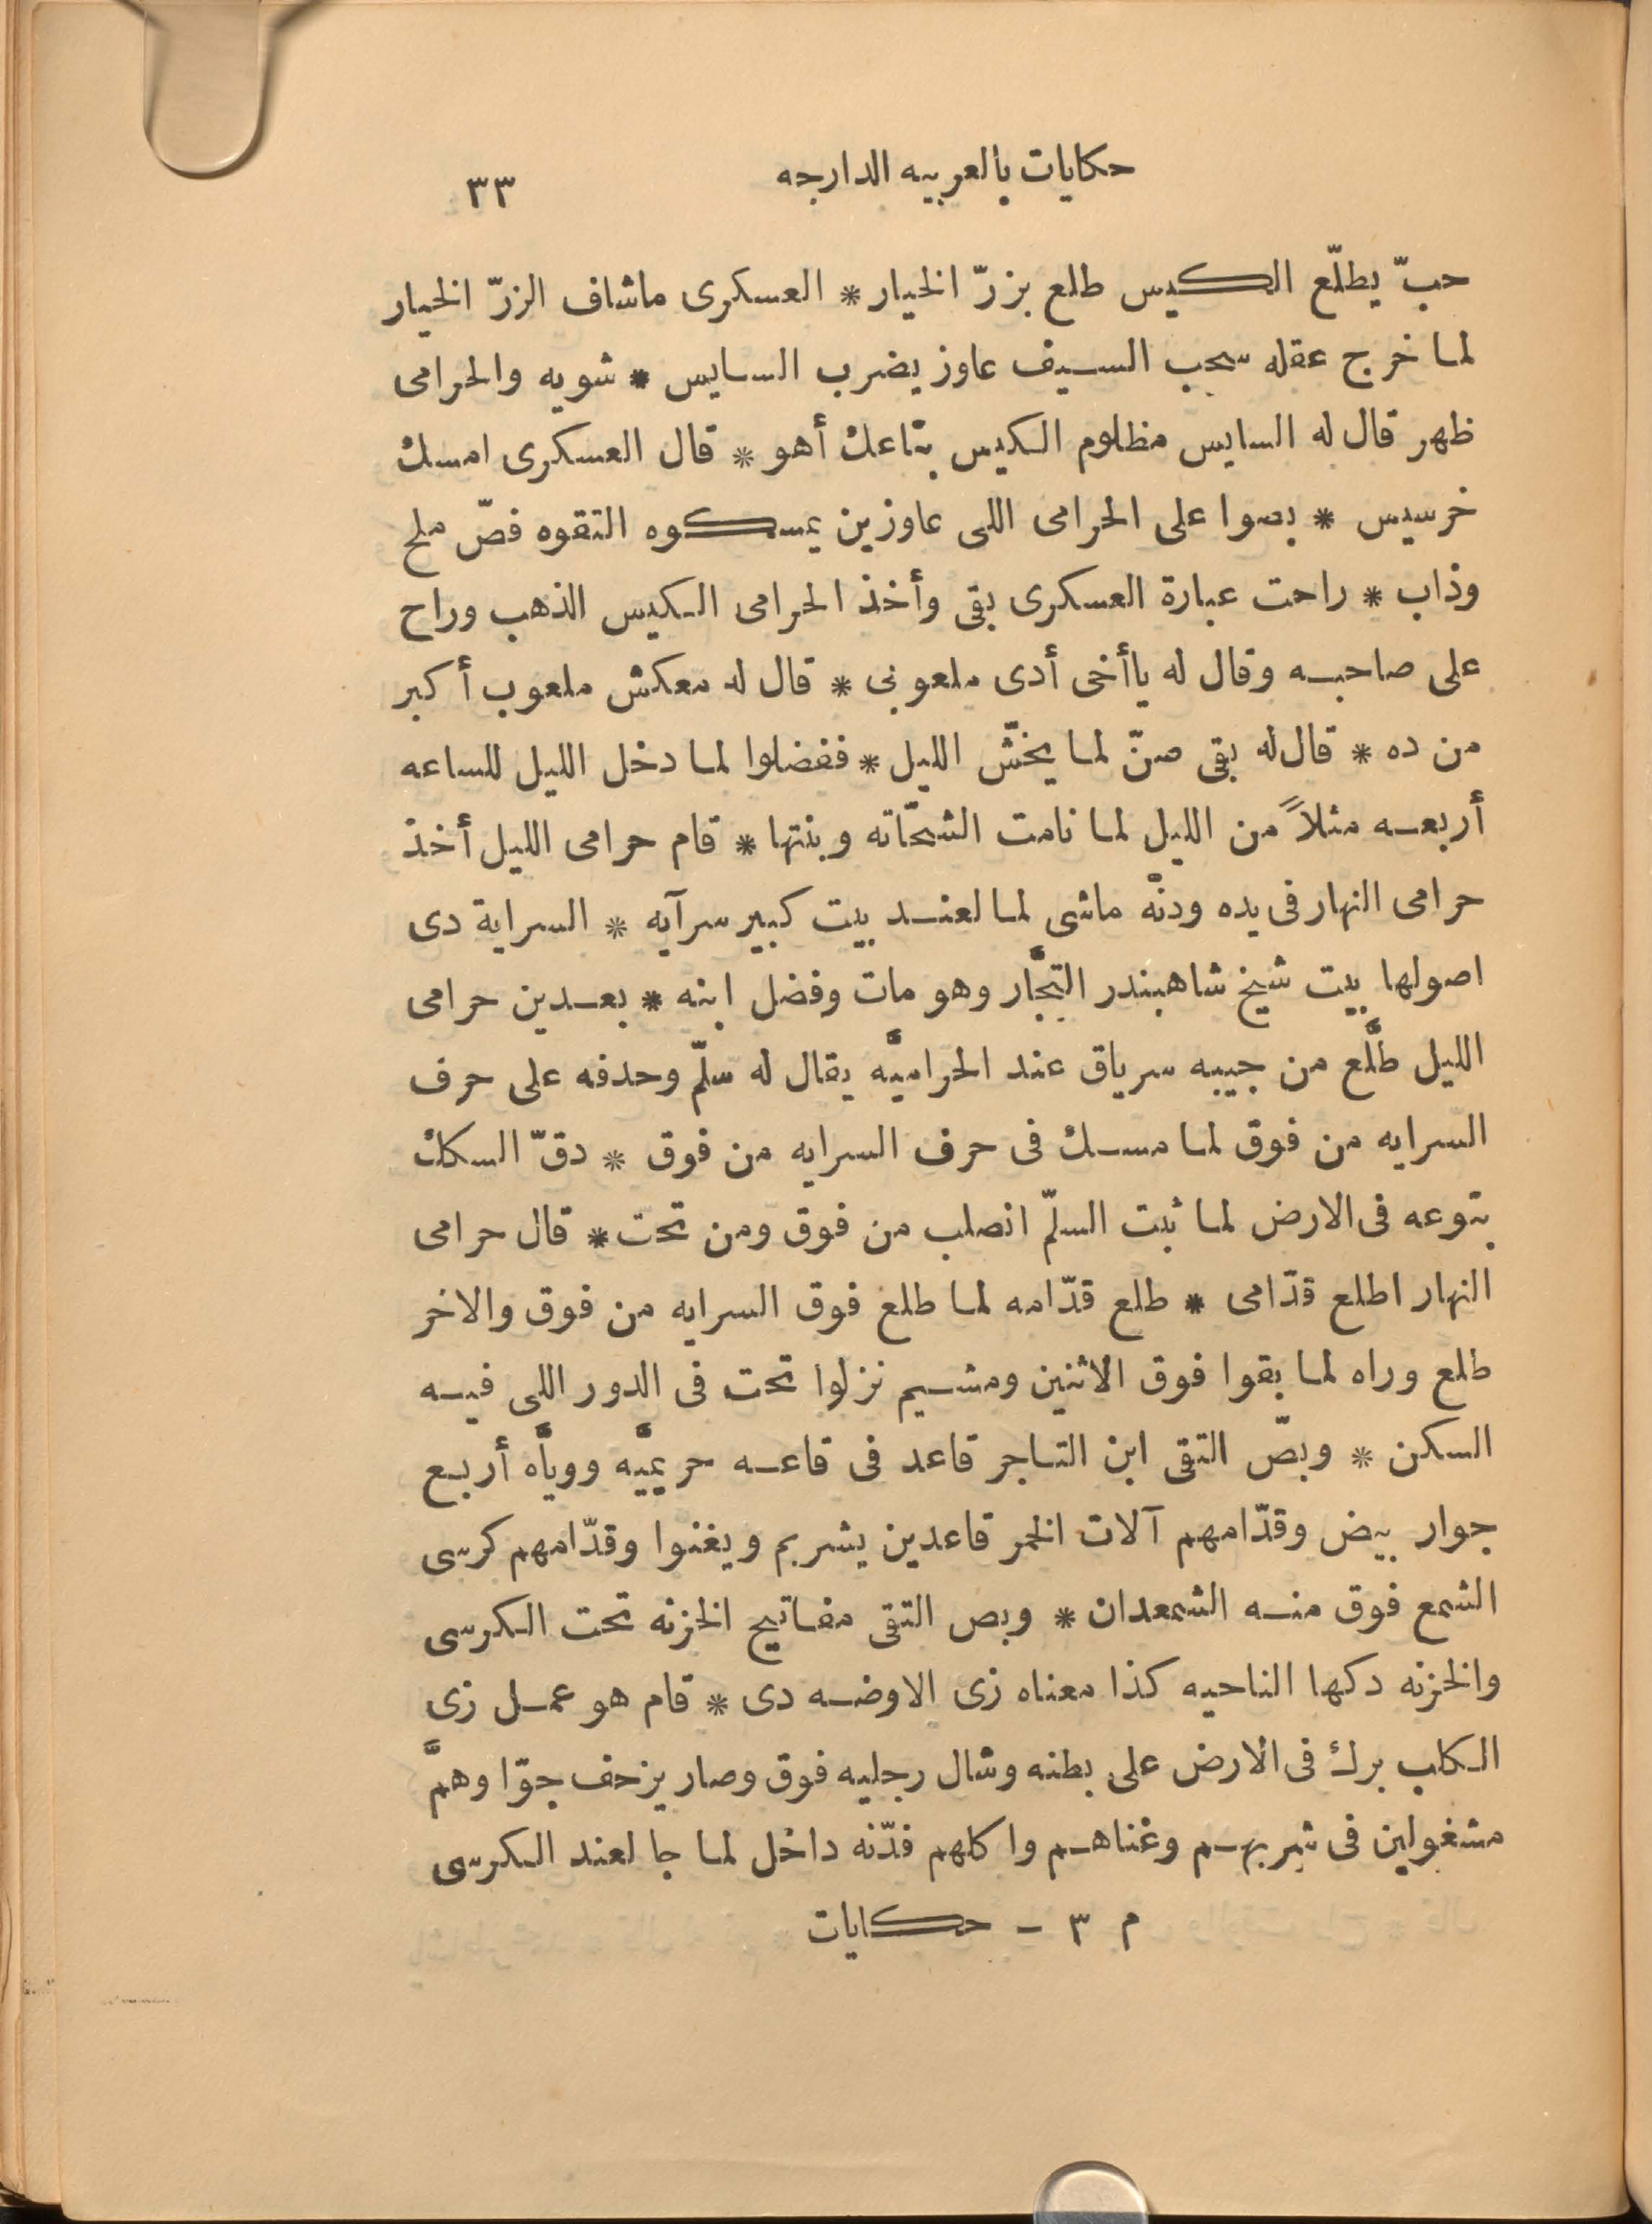 حكايات بالعربيه الدارجه ٣٣
حبّ يطلّع الكيس طلع بزرّ الخيار * العسكرى ماشاف الزرّ الخيار
لما خرج عقله سحب السيف عاوز يضرب السايس * شويه والحرامى
ظهر قال له السايس مظلوم الكيس بتاعك أهو * قال العسكرى امسك
خرسيس * بصوا على الحرامى اللى عاوزين يمسكوه التقوه فصّ ملح
وذاب * راحت عبارة العسكرى بقى وأخذ الحرامى الكيس الذهب وراح
على صاحبه وقال له ياأخى أدى ملعوبى * قال له معكش ملعوب أكبر
من ده * قال له بقى صنّ لما يخشّ الليل * ففضلوا لما دخل الليل للساعه
أربعه مثلاً من الليل لما نامت الشحّاته وبنتها * قام حرامى الليل أخذ
حرامى النهار فى يده ودنّه ماشى لما لعند بيت كبير سرآيه * السراية دى
اصولها بيت شيخ شاهبندر التجّار وهو مات وفضل ابنه * بعدين حرامى
الليل طلّع من جيبه سرياق عند الحراميّه يقال له سلّم وحدفه على حرف
السرايه من فوق لما مسك فى حرف السرايه من فوق * دقّ السكك
بتوعه فى الارض لما ثبت السلّم انصلب من فوق ومن تحت * قال حرامى
النهار اطلع قدّامى * طلع قدّامه لما طلع فوق السرايه من فوق والاخر
طلع وراه لما بقوا فوق الاثنين ومشيم نزلوا تحت فى الدور اللى فيه
السكن * وبصّ التقى ابن التاجر قاعد فى قاعه حريميّه وويّاه أربع
جوار بيض وقدّامهم آلات الخمر قاعدين يشربم ويغنوا وقدّامهم كرسى
الشمع فوق منه الشمعدان * وبص التقى مفاتيح الخزنه تحت الكرسى
والخزنه دكها الناحيه كذا معناه زى الاوضه دى * قام هو عمل زى
الكلب برك فى الارض على بطنه وشال رجليه فوق وصار يزحف جوّا وهمّ
مشغولين فى شربهم وغناهم واكلهم فدّنه داخل لما جا لعند الكرسى
م ٣ – حكايات